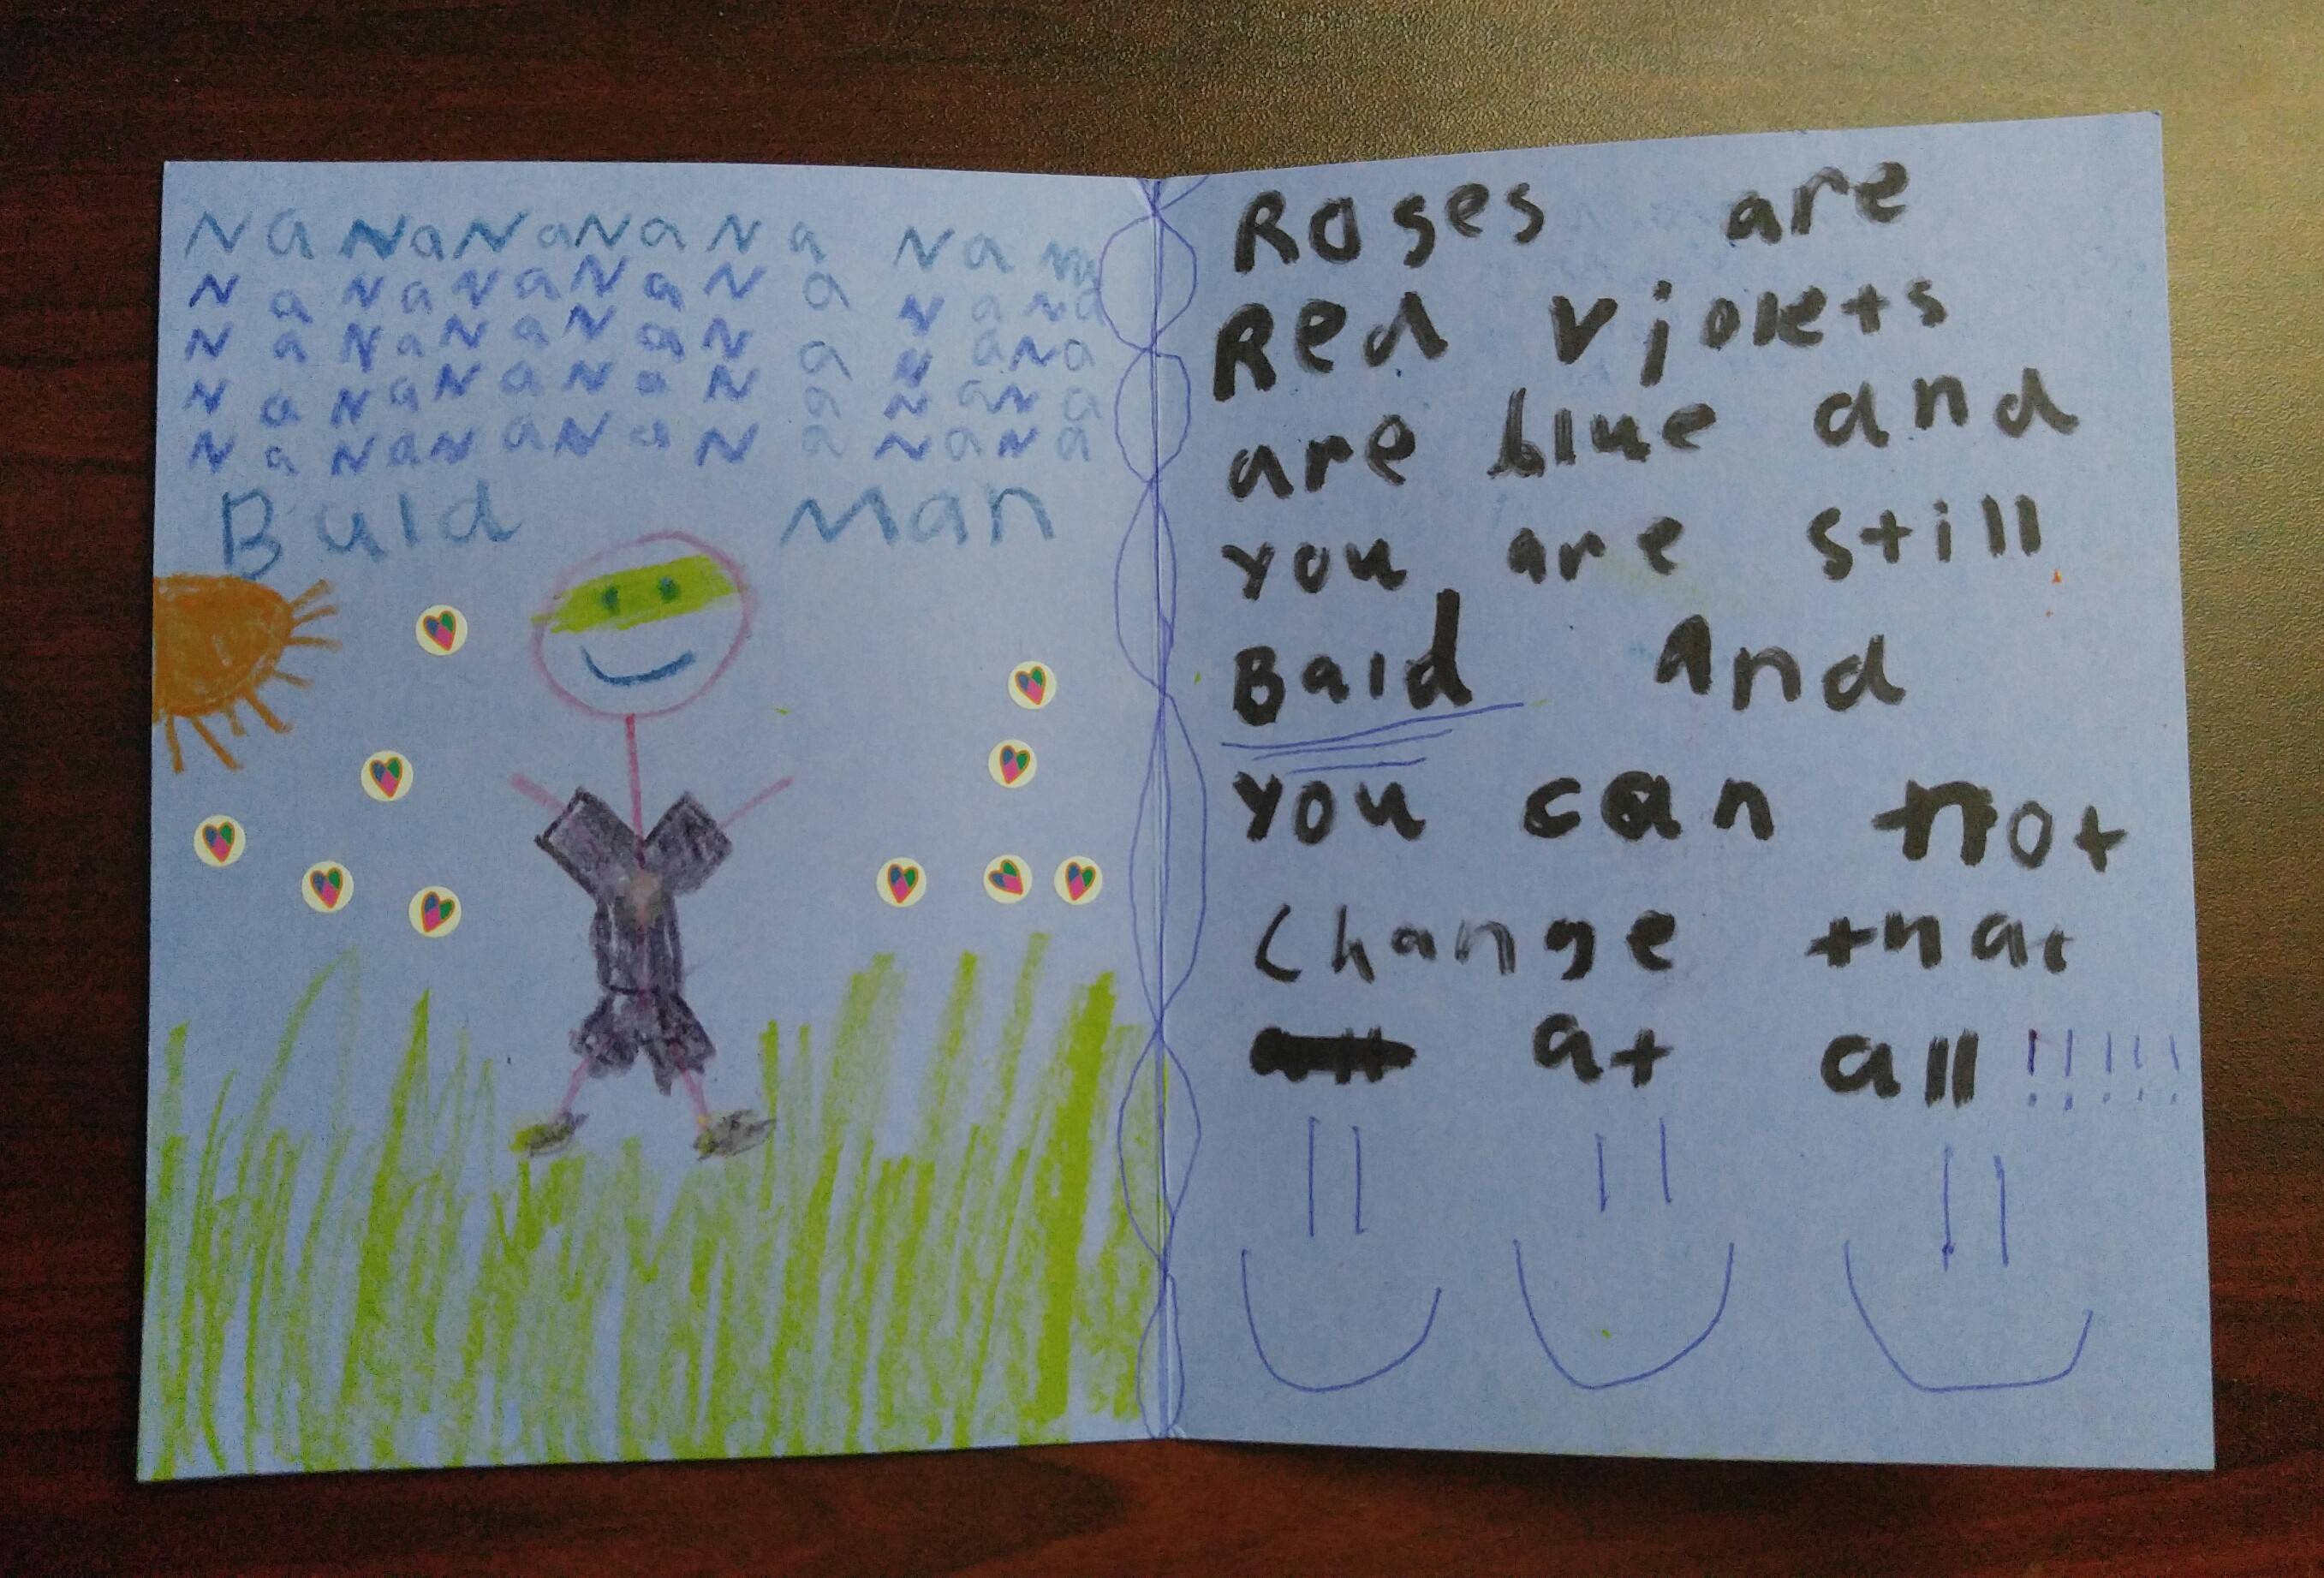 Na Na Na Na Na Na Na
Na Na Na Na Na Na Na
Na Na Na Na Na Na Na
Na Na Na Na Na Na Na
Na Na Na Na Na Na Na
Buld Man
Roses are
Red violets
are blue and
you are still
Bald And
you can not
Change that
at all !!!!!